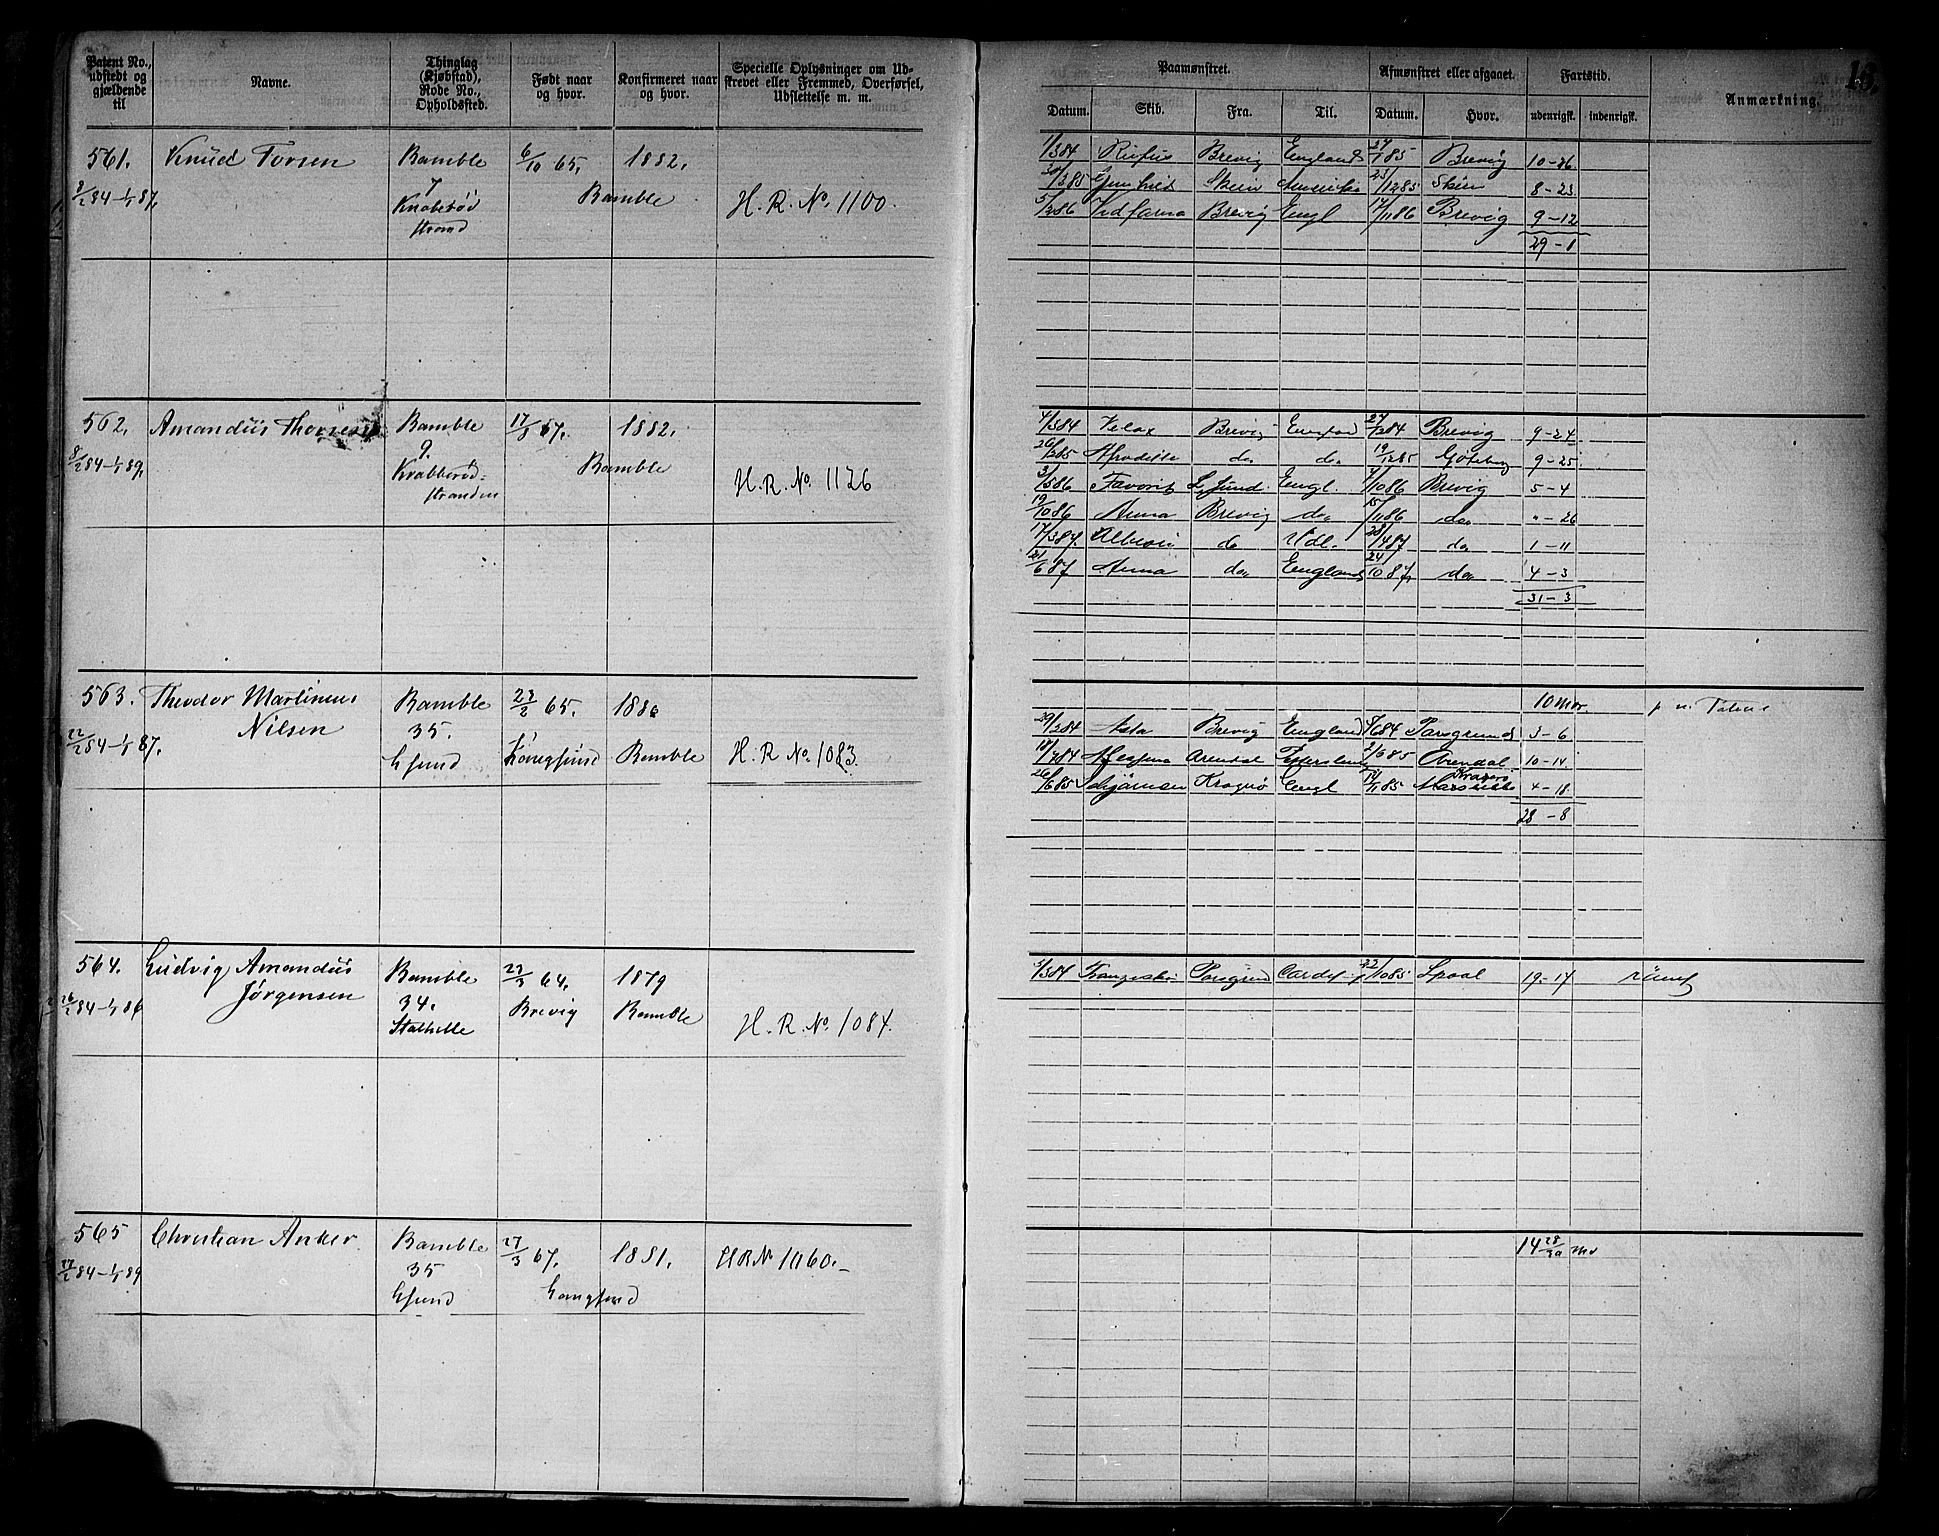 Patent No., udstedt og gjældende til
Navne.
Thinglag (Kjøbstad), Rode No., Opholdssted.
Født naar og hvor.
Konfirmeret naar og hvor.
Specielle Oplysninger om Udskrevet eller Fremmed, Overførsel, Udslettelse m. m.
561. Knud Torsen Bamble 6/10 65. 1882.
8/2 84-1/1 87. 7 Bamble H. R. No. 1100.
Strand
562. Amandus Bamble 67. 1882.
8/2 84-1/1 89. 9. Bamble
Krabberød-
stranden H. R. No. 1126
563. Theodor Martinius Bamble 23/2 65. 1880
Nilsen 35.
22/2 84-1/1 87. Lsund Langsund Bamble H. R. No. 1083.
564. Ludvig Amandus Bamble 64. 1879
Jørgensen 34. Brevig Bamble
26/2 84-1/1 86 Stathelle H. R. No. 1084.
565 Christian Anker Bamble 27/3 67. 1881. H R No 1060.-
27/2 84-1/1 89 35
Lsund Langsund
16.
Paamønstret.
Afmønstret eller afgaaet.
Fartstid.
Anmærkning.
Datum. Skib. Fra. Til. Datum. Hvor. udenrigsk. indenrigsk.
1/3 84 Rufus Brevig England 85 Brevig 10-26
85 Gunhild Skien Amerika 23/12 85 Skien 8-23
86 Vidfarna Brevig Engl 17/11 86 Brevig 9-12
29-1
4/3 84 Velox Brevig England 27/12 84 Brevig 9-24
26/2 85 Afrodite do do 19/12 85 Gøteborg 9-25
86 Favorit L.sund Engl. 7/10 86 Brevig 5-4
19/10 86 Anna Brevig do 15/11 86 do " - 26
17/3 87. do Udl. 28/4 87 do 1-11
21/6 87 Anna do England 24/10 87 do 4-3
31-3
10 Mdr.
29/2 84 Asta Brevig England 4/6 84 Porsgrund 3-6
18/7 84 Arendal 85 Arendal 10-14
26/6 85 Kragerø Engl 14/11 85 4-18
28-8
5/3 84 Porsgrund Cardif 22/10 85 19-17 rømt
14 28/30 Md